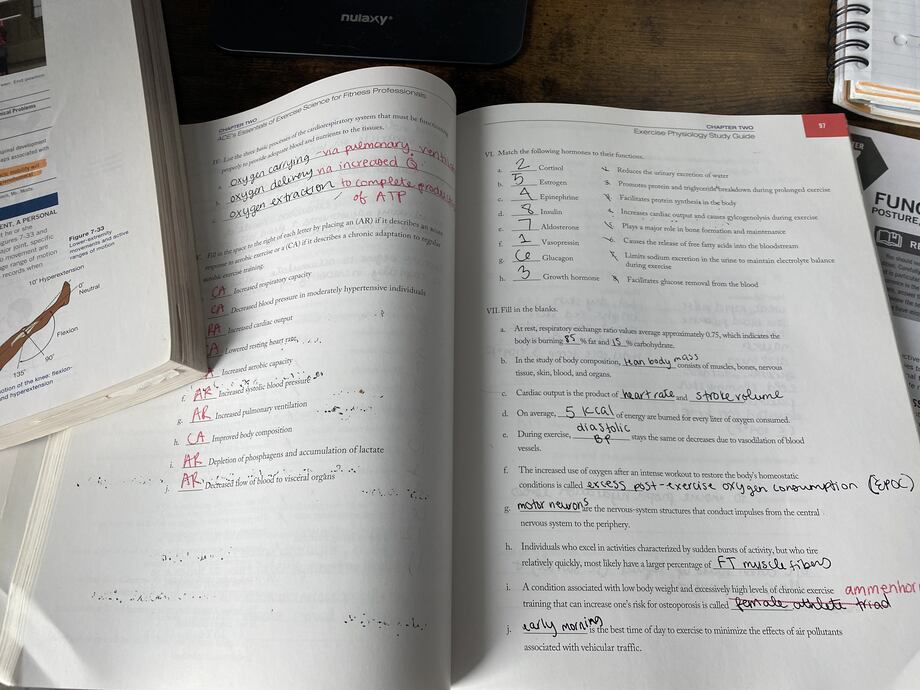 nulaxy
End position
nical Problems
ginal development
aps associated with
ENT, A PERSONAL
it he or she
igures 7-33 and
ajor joint, specific
o movement are
ge range of motion
records when
Figure 7-33
Lower-extremity
movements and active
ranges of motion
10° Hyperextension
0°
Neutral
Flexion
90°
135°
otion of the knee: flexion-
nd hyperextension
CHAPTER TWO
ACE's Essentials of Exercise Science for Fitness Professionals
IV. List the three basic processes of the cardiorespiratory system that must be functioning
properly to provide adequate blood and nutrients to the tissues.
a. oxygen carrying - via pulmonary
b. oxygen delivery via increased Q
c. oxygen extraction to complete
of ATP
V. Fill in the space to the right of each letter by placing an (AR) if it describes an acute
response to aerobic exercise or a (CA) if it describes a chronic adaptation to regular
aerobic exercise training.
CA Increased respiratory capacity
CA Decreased blood pressure in moderately hypertensive individuals
Increased cardiac output
A Lowered resting heart rate
A Increased aerobic capacity
f. AR Increased systolic blood pressure
g. AR Increased pulmonary ventilation
h. CA Improved body composition
i. AR Depletion of phosphagens and accumulation of lactate
j. AR Decreased flow of blood to visceral organs
CHAPTER TWO
Exercise Physiology Study Guide
97
VI. Match the following hormones to their functions.
a. 2 Cortisol Reduces the urinary excretion of water
b. 5 Estrogen Promotes protein and triglyceride breakdown during prolonged exercise
c. 4 Epinephrine Facilitates protein synthesis in the body
d. 8 Insulin Increases cardiac output and causes gylcogenolysis during exercise
e. 7 Aldosterone Plays a major role in bone formation and maintenance
f. 1 Vasopressin 6. Causes the release of free fatty acids into the bloodstream
g. 6 Glucagon Limits sodium excretion in the urine to maintain electrolyte balance
during exercise
h. 3 Growth hormone Facilitates glucose removal from the blood
VII. Fill in the blanks.
a. At rest, respiratory exchange ratio values average approximately 0.75, which indicates the
body is burning 85 % fat and 15 % carbohydrate.
b. In the study of body composition, lean body mass consists of muscles, bones, nervous
tissue, skin, blood, and organs.
c. Cardiac output is the product of heart rate and stroke volume
d. On average, 5 kcal of energy are burned for every liter of oxygen consumed.
e. During exercise, diastolic BP stays the same or decreases due to vasodilation of blood
vessels.
f. The increased use of oxygen after an intense workout to restore the body's homeostatic
conditions is called excess post-exercise oxygen consumption (EPOC)
g. motor neurons are the nervous-system structures that conduct impulses from the central
nervous system to the periphery.
h. Individuals who excel in activities characterized by sudden bursts of activity, but who tire
relatively quickly, most likely have a larger percentage of FT muscle fibers
i. A condition associated with low body weight and excessively high levels of chronic exercise ammenhor
training that can increase one's risk for osteoporosis is called female athlete triad
j. early morning is the best time of day to exercise to minimize the effects of air pollutants
associated with vehicular traffic.
FUNC
POSTURE,